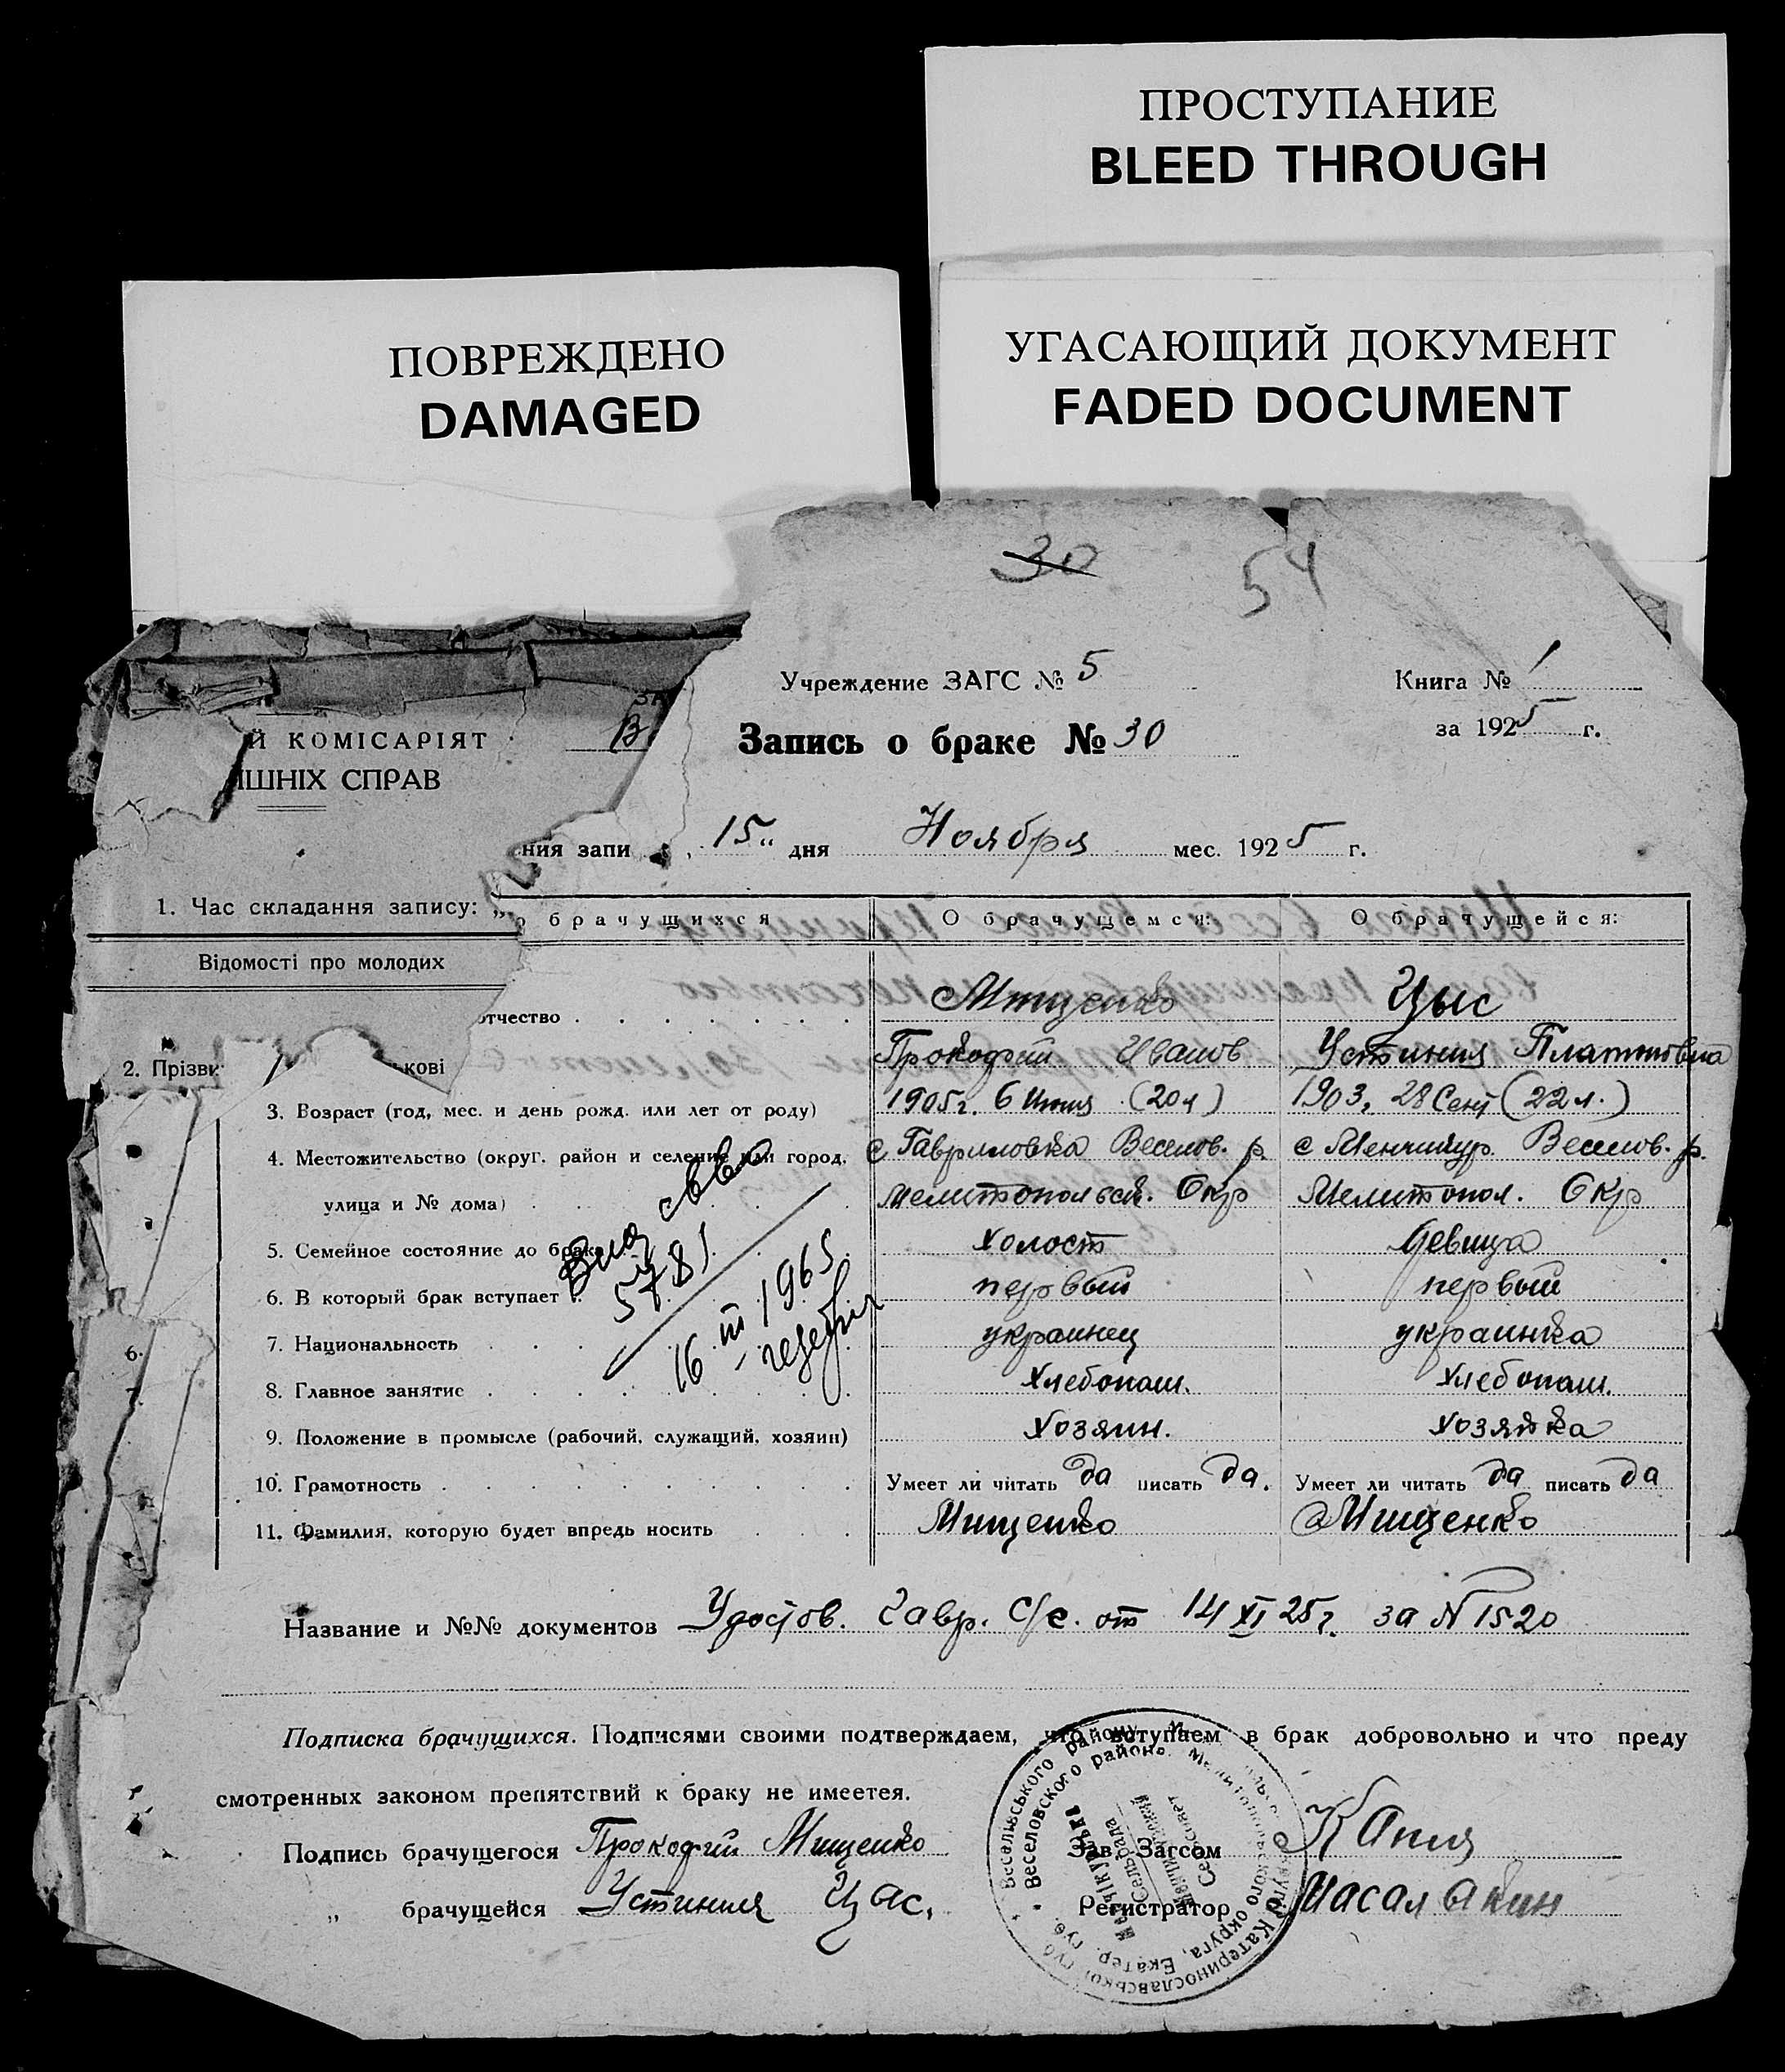 ПРОСТУПАНИЕ
BLEED THROUGH
ПОВРЕЖДЕНО
DAMAGED
УГАСАЮЩИЙ ДОКУМЕНТ
FADED DOCUMENT
30
54
Учреждение ЗАГС № 5
Книга № 1
Запись о браке № 30
за 1925 г.
Й КОМІСАРІЯТ
ІШНІХ СПРАВ
ения запи „ 15 „ дня Ноября мес. 1925 г.
1. Час складання запису: „
о брачущихся
О брачущемся:
О брачущейся:
Відомості про молодих
отчество
Мищенко
Цыс
2. Прізви
ькові
Прокофий Иванов
Устиния Платоновна
3. Возраст (год, мес. и день рожд. или лет от роду)
1905 г. 6 Июня (20 л)
1903, 28 Сент (22 л.)
4. Местожительство (округ, район и селение или город,
с Гавриловка Веселов. р.
с Менчикур Веселов. р.
улица и № дома)
Мелитопольск. Окр
Мелитопол. Окр
5. Семейное состояние до брака
холост
девица
6. В который брак вступает
первый
первый
7. Национальность
украинец
украинка
8. Главное занятие
Хлебопаш.
Хлебопаш.
9. Положение в промысле (рабочий, служащий, хозяин)
Хозяин.
Хозяйка
10. Грамотность
Умеет ли читать да писать да.
Умеет ли читать да писать да
11. Фамилия, которую будет впредь носить
Мищенко
Мищенко
6.
7.
16 III 1965
Название и №№ документов Удостов. Гавр. С/с. от 14 XI 25 г. за № 1520
Подписка брачущихся. Подписями своими подтверждаем, что вступаем в брак добровольно и что преду
смотренных законом препятствий к браку не имеется.
Подпись брачущегося Прокофий Мищенко
Зав. Загсом
„ брачущейся Устиния Цис.
Регистратор
Веселівського району
Веселовского района
Сельрада
округа, Екатер. губ.
Катеринославської губ.